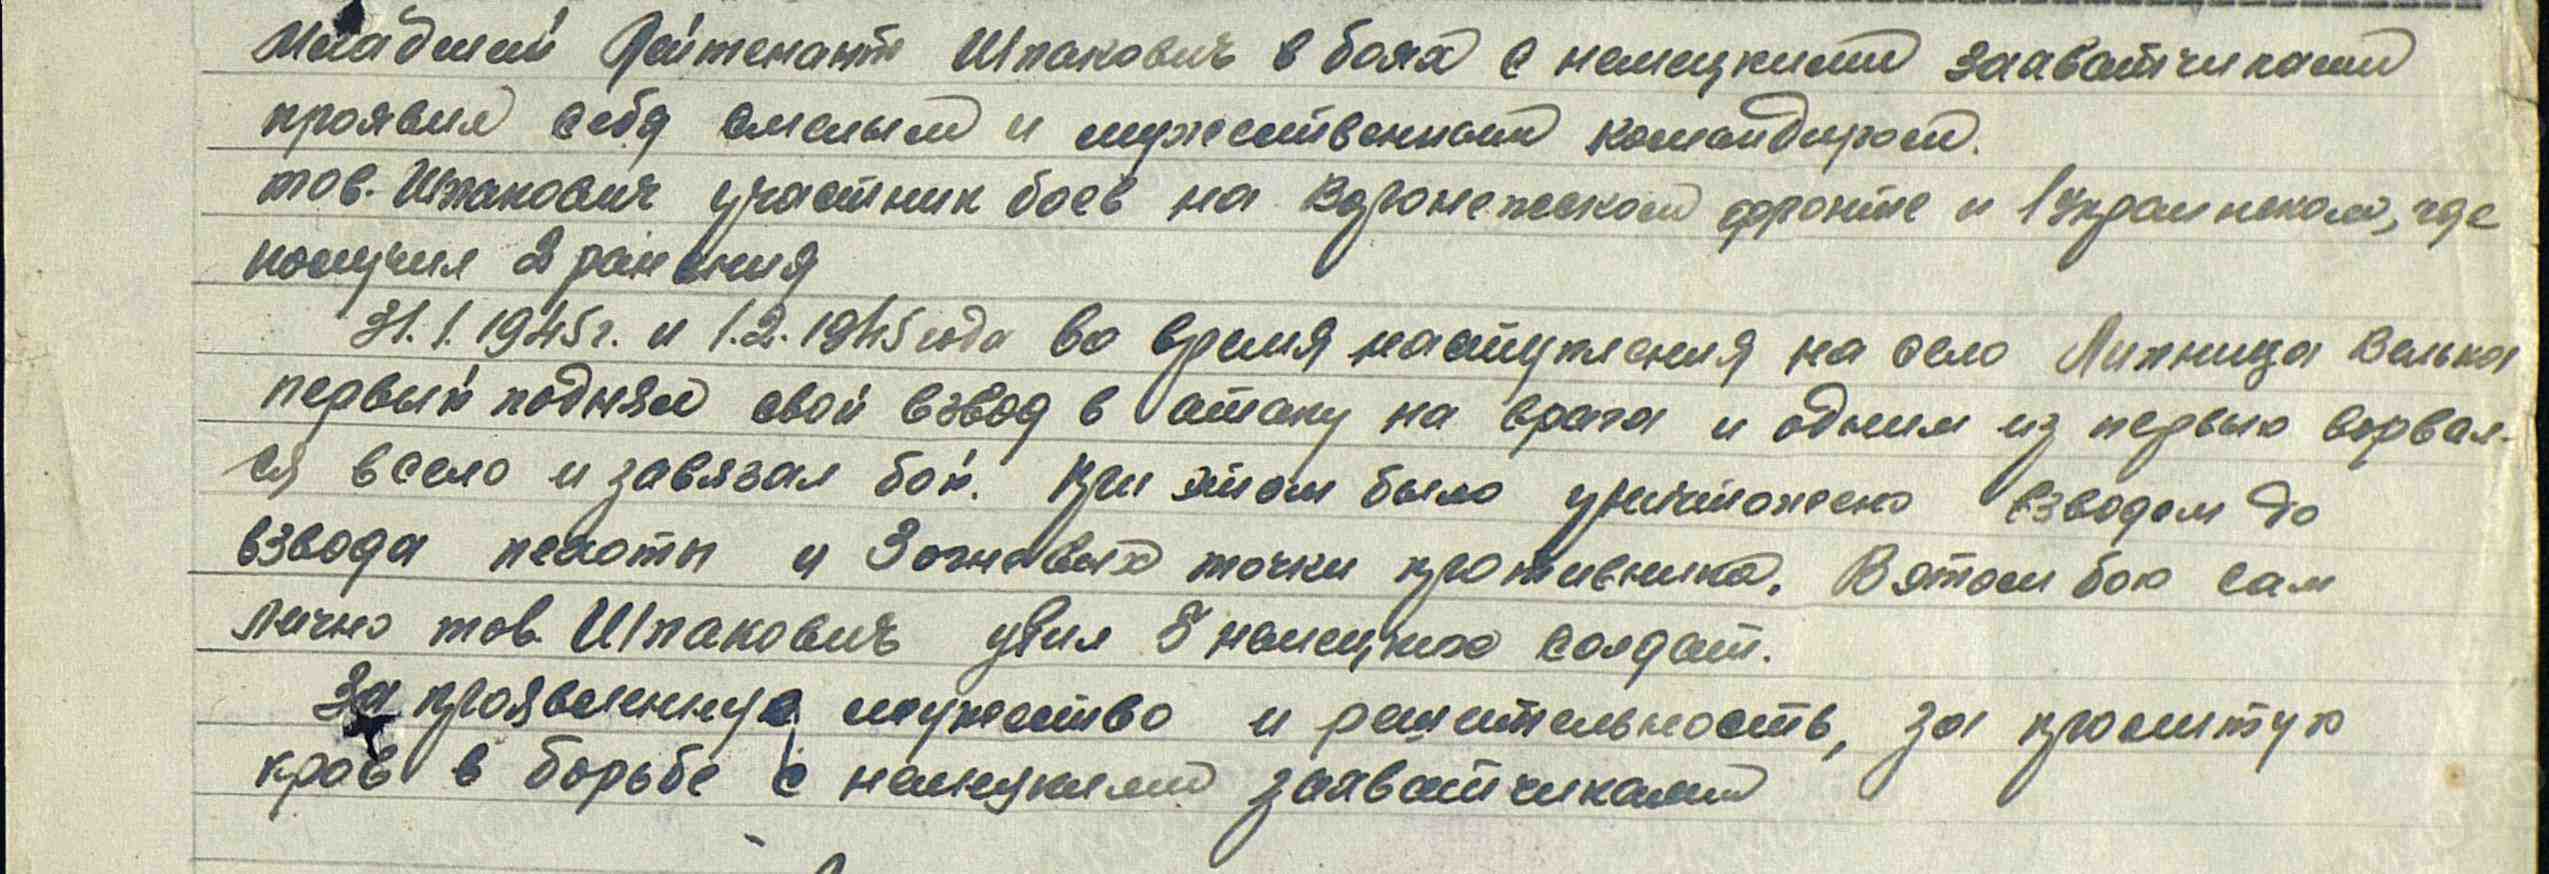 Младший Лейтенант Шпакович в боях с немецкими захватчиками
проявил себя смелым и мужественным командиром.
тов. Шпакович участник боев на Воронежском фронте и 1 Украинском, где
получил 2 ранения
31.1.1945г. и 1.2.1945 года во время наступления на село Липница Велька
первый поднял свой взвод в атаку на врага и одним из первых ворвал-
ся в село и завязал бой. При этом было уничтожено взводом до
взвода пехоты и 3 огневых точки противника. В этом бою сам
лично тов. Шпакович убил 8 немецких солдат.
За проявленную мужество и решительность, за пролитую
кров в борьбе с немецкими захватчиками